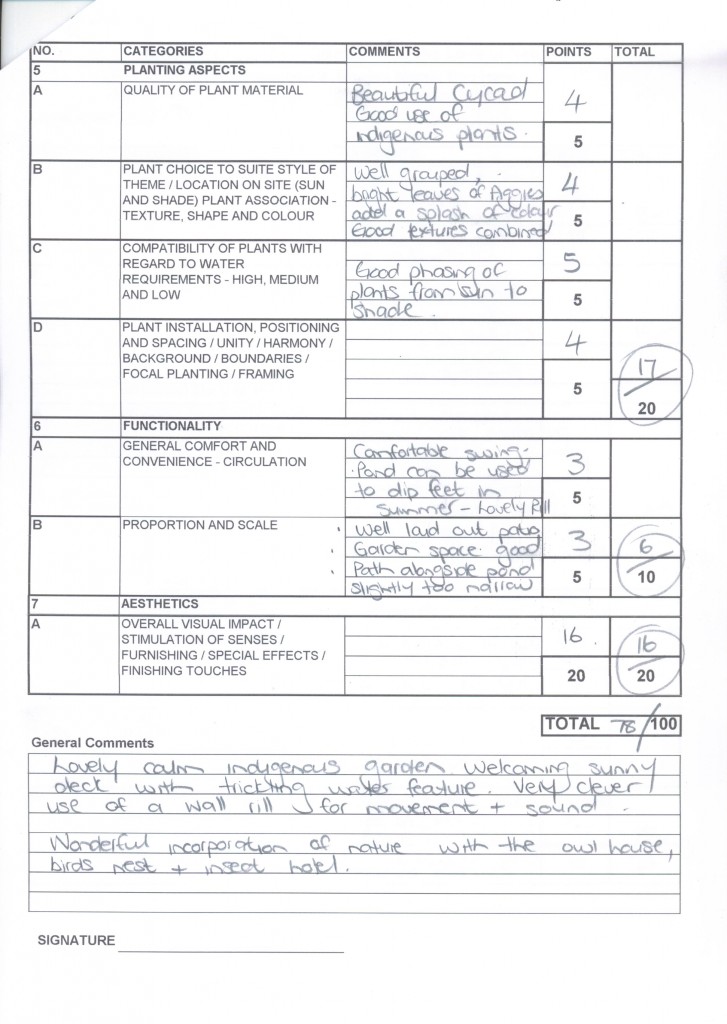 NO. CATEGORIES COMMENTS POINTS TOTAL
5 PLANTING ASPECTS
A QUALITY OF PLANT MATERIAL
Beautiful Cycad
Good use of
indigenous plants.
4
5
B PLANT CHOICE TO SUITE STYLE OF
THEME / LOCATION ON SITE (SUN
AND SHADE) PLANT ASSOCIATION -
TEXTURE, SHAPE AND COLOUR
Well grouped,
bright leaves of Aggies
add a splash of colour
Good textures combined
4
5
C COMPATIBILITY OF PLANTS WITH
REGARD TO WATER
REQUIREMENTS - HIGH, MEDIUM
AND LOW
Good phasing of
plants from sun to
shade.
5
5
D PLANT INSTALLATION, POSITIONING
AND SPACING / UNITY / HARMONY /
BACKGROUND / BOUNDARIES /
FOCAL PLANTING / FRAMING
4
5
17
20
6 FUNCTIONALITY
A GENERAL COMFORT AND
CONVENIENCE - CIRCULATION
Comfortable swing.
Pond can be used
to dip feet in
summer - Lovely Rill
3
5
B PROPORTION AND SCALE
Well laid out patio
Garden space good
Path alongside pond
slightly too narrow
3
5
6
10
7 AESTHETICS
A OVERALL VISUAL IMPACT /
STIMULATION OF SENSES /
FURNISHING / SPECIAL EFFECTS /
FINISHING TOUCHES
16
20
16
20
TOTAL 78/100
General Comments
Lovely calm indigenous garden welcoming sunny
deck with trickling water feature. Very clever
use of a wall rill for movement + sound.
Wonderful incorporation of nature with the owl house,
birds nest + insect hotel.
SIGNATURE